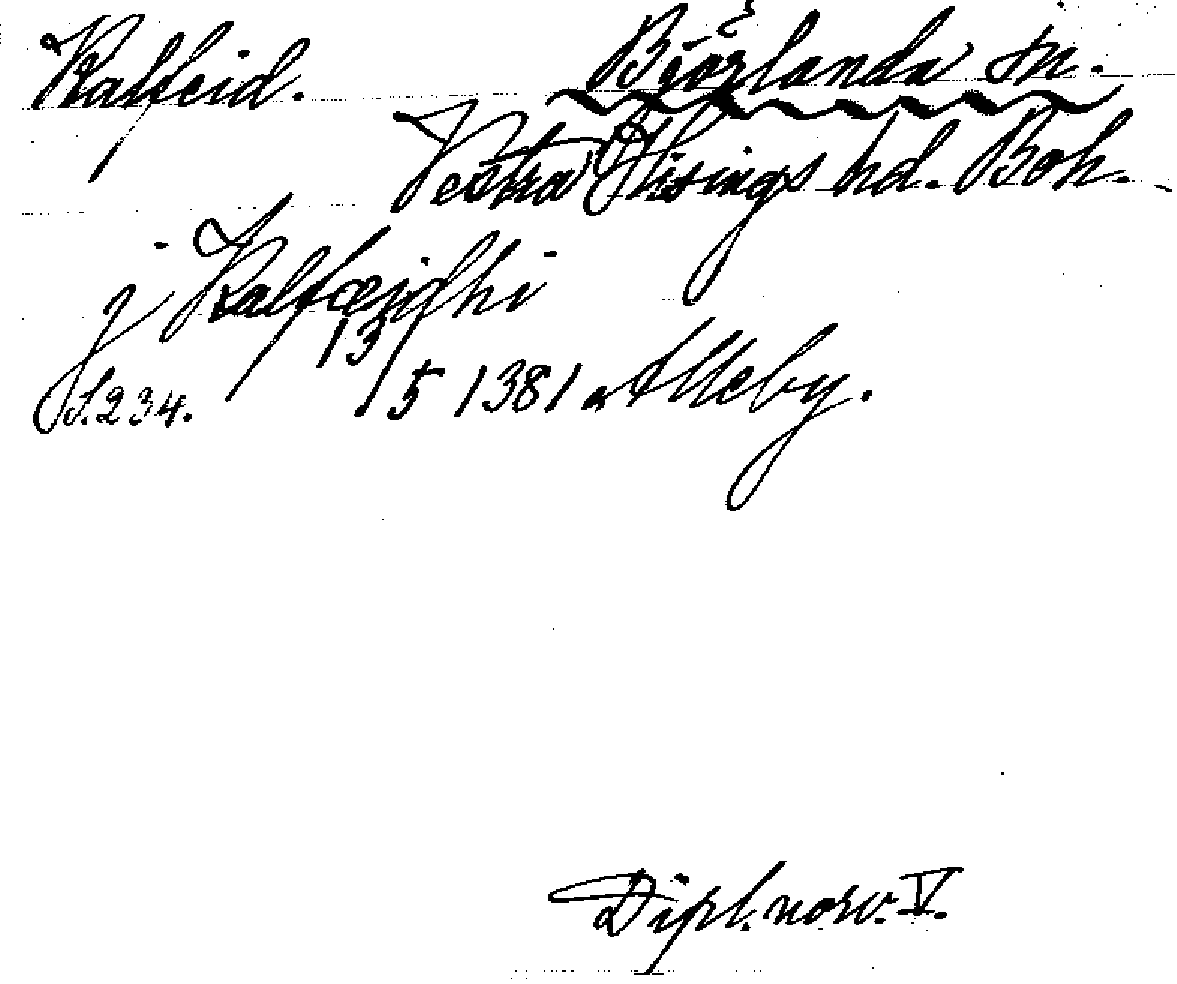 Kalfeid. Björlanda sn.
Vestra Hisings hd. Boh.
j Kalfæidhi
S. 234. 13/5 1381 Alleby.
Dipl. norv. V.